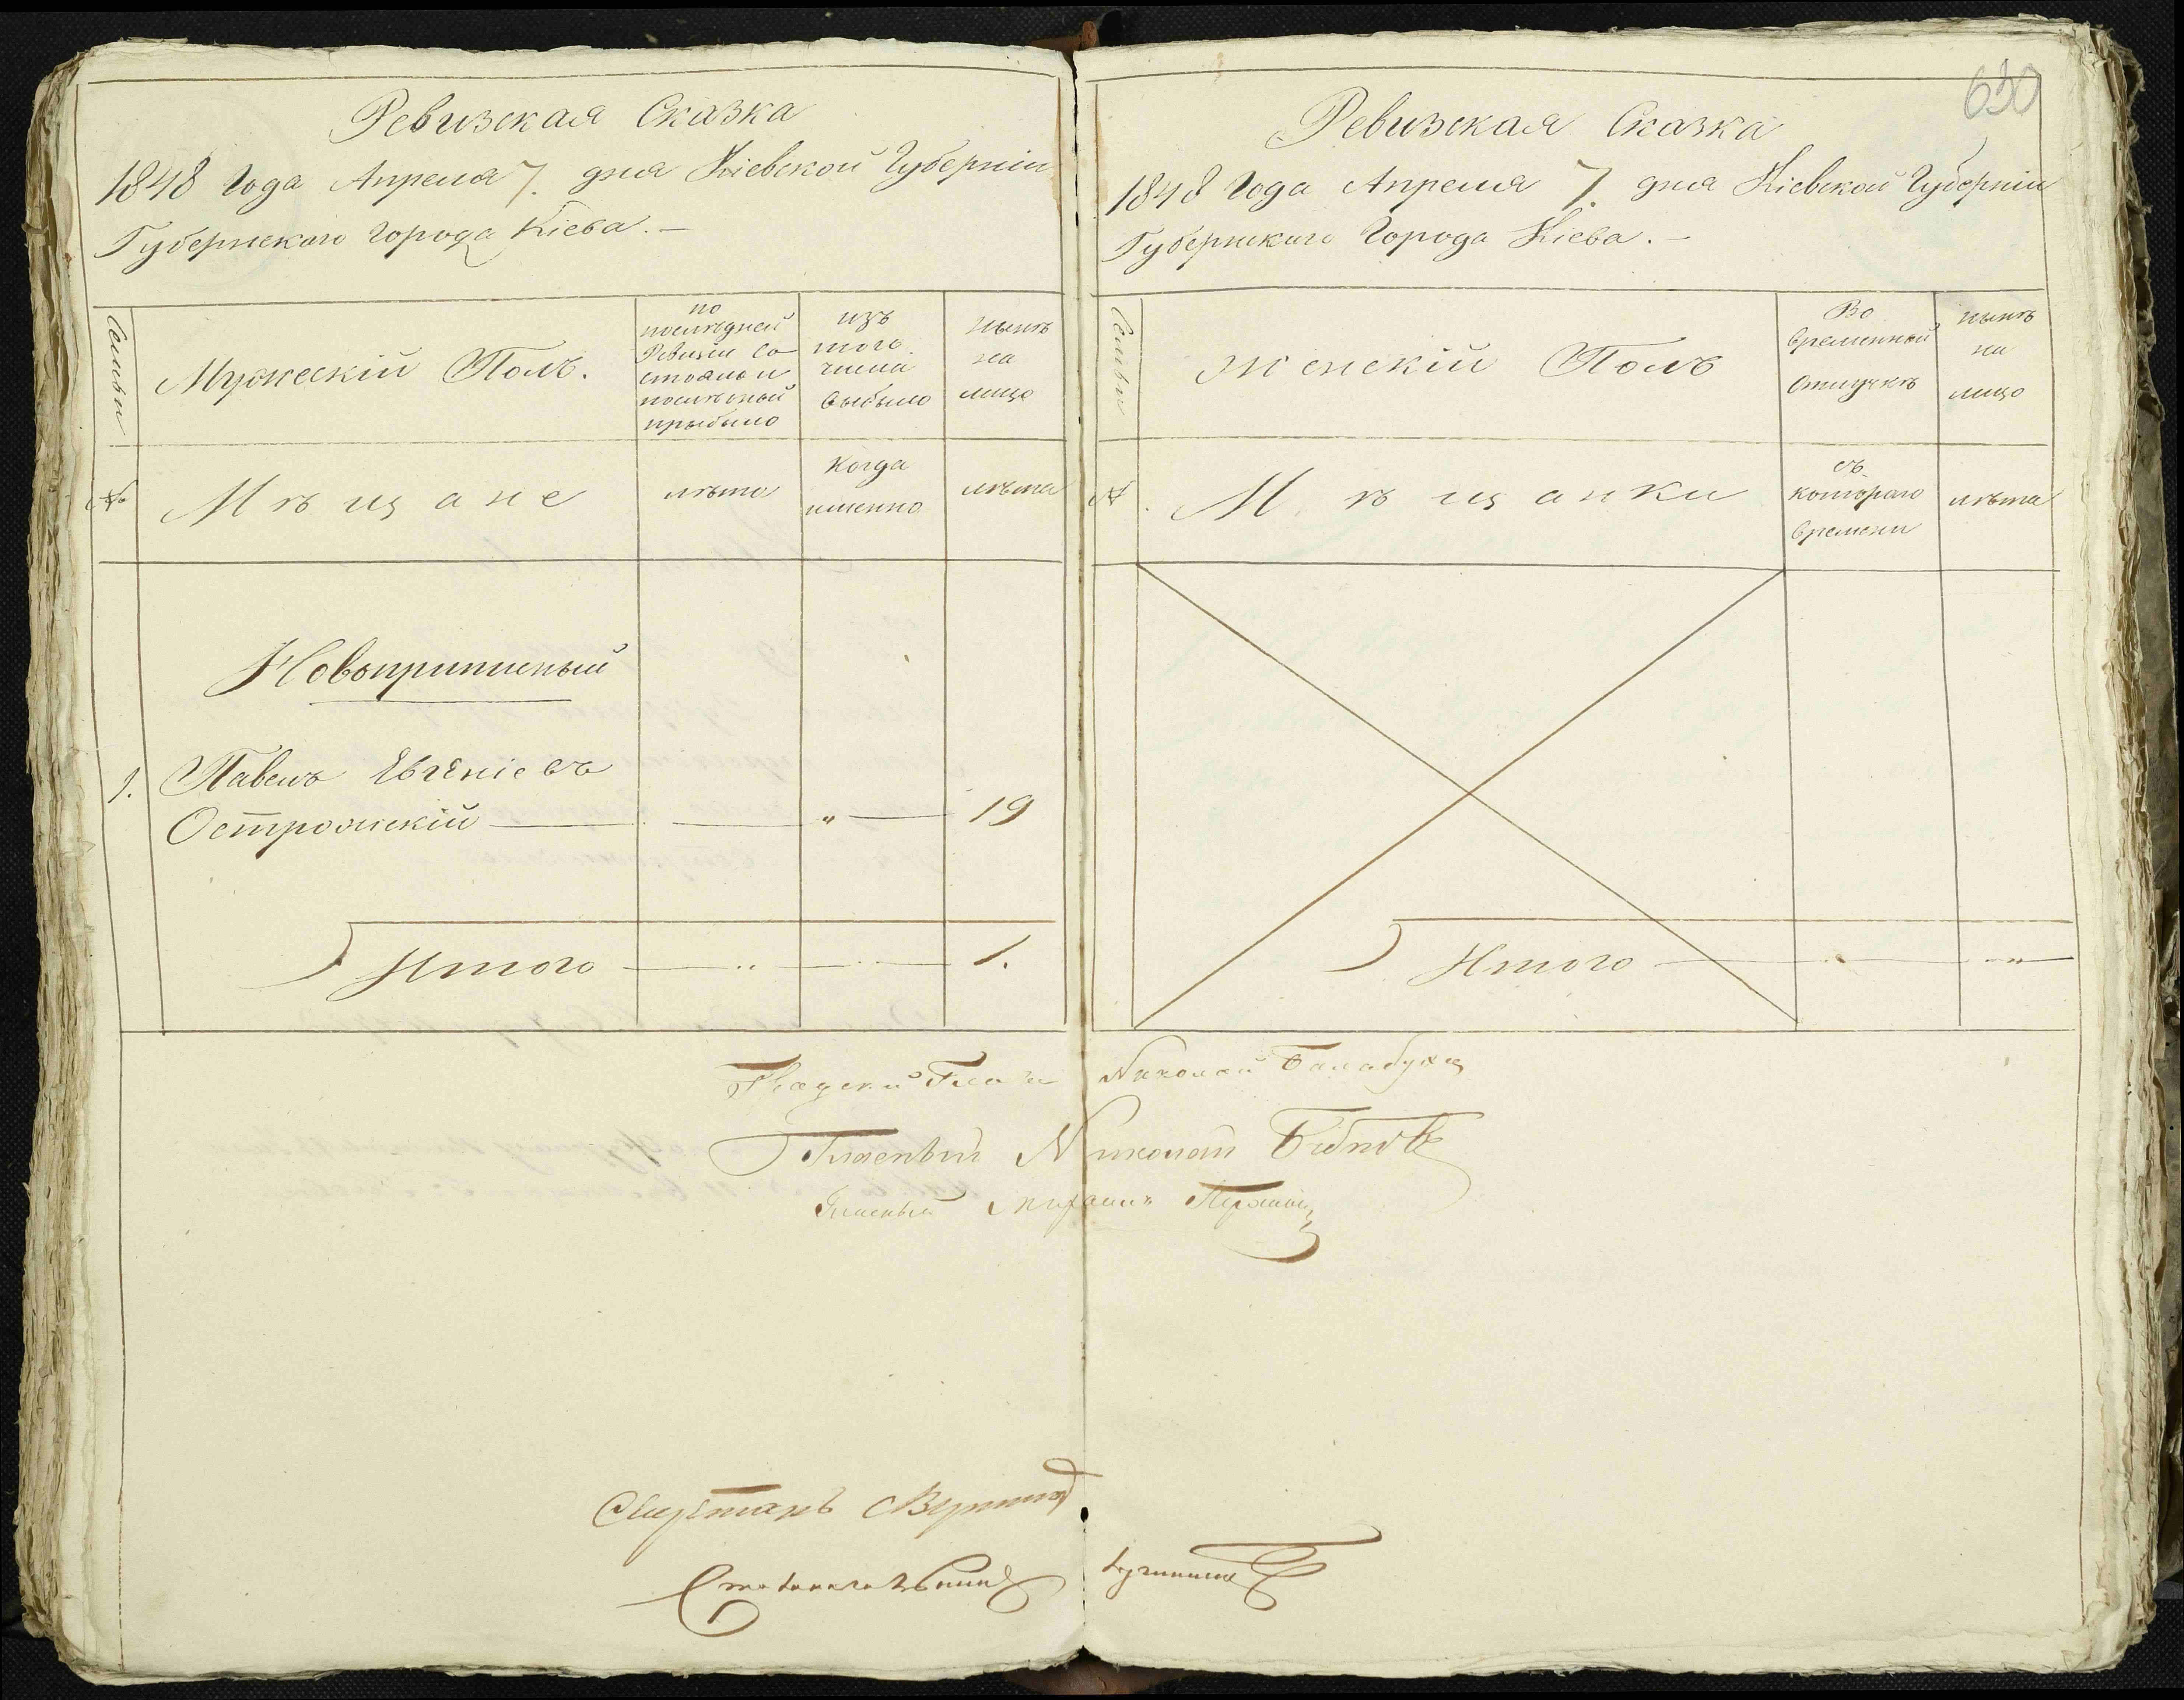 Ревизская Сказка
1848 Года Апреля 7. дня Кіевской Губерніи
Губернскаго Города Кіева. —
Семьи
Мужескій Полъ.
по
послѣдней
Ревизіи со
стояло и
послѣ оной
прыбыло
изъ
того
числа
выбыло
нынѣ
на
лицо
№
Мѣщане
лѣта
когда
именно
лѣта
Новоприписный
1. Павелъ Евгеніевъ
Острожскій — " — 19
Итого — " — 1.
630
Ревизская Сказка
1848 Года Апреля 7. дня Кіевской Губерніи
Губернскаго Города Кіева. —
Семьи
Женскій Полъ
Во
временной
отлучкѣ
нынѣ
на
лицо
№
Мѣщанки
съ
котораго
времени
лѣта
Итого — "
Николай Балабуха
Гласный Николай
Гласный Михаилъ